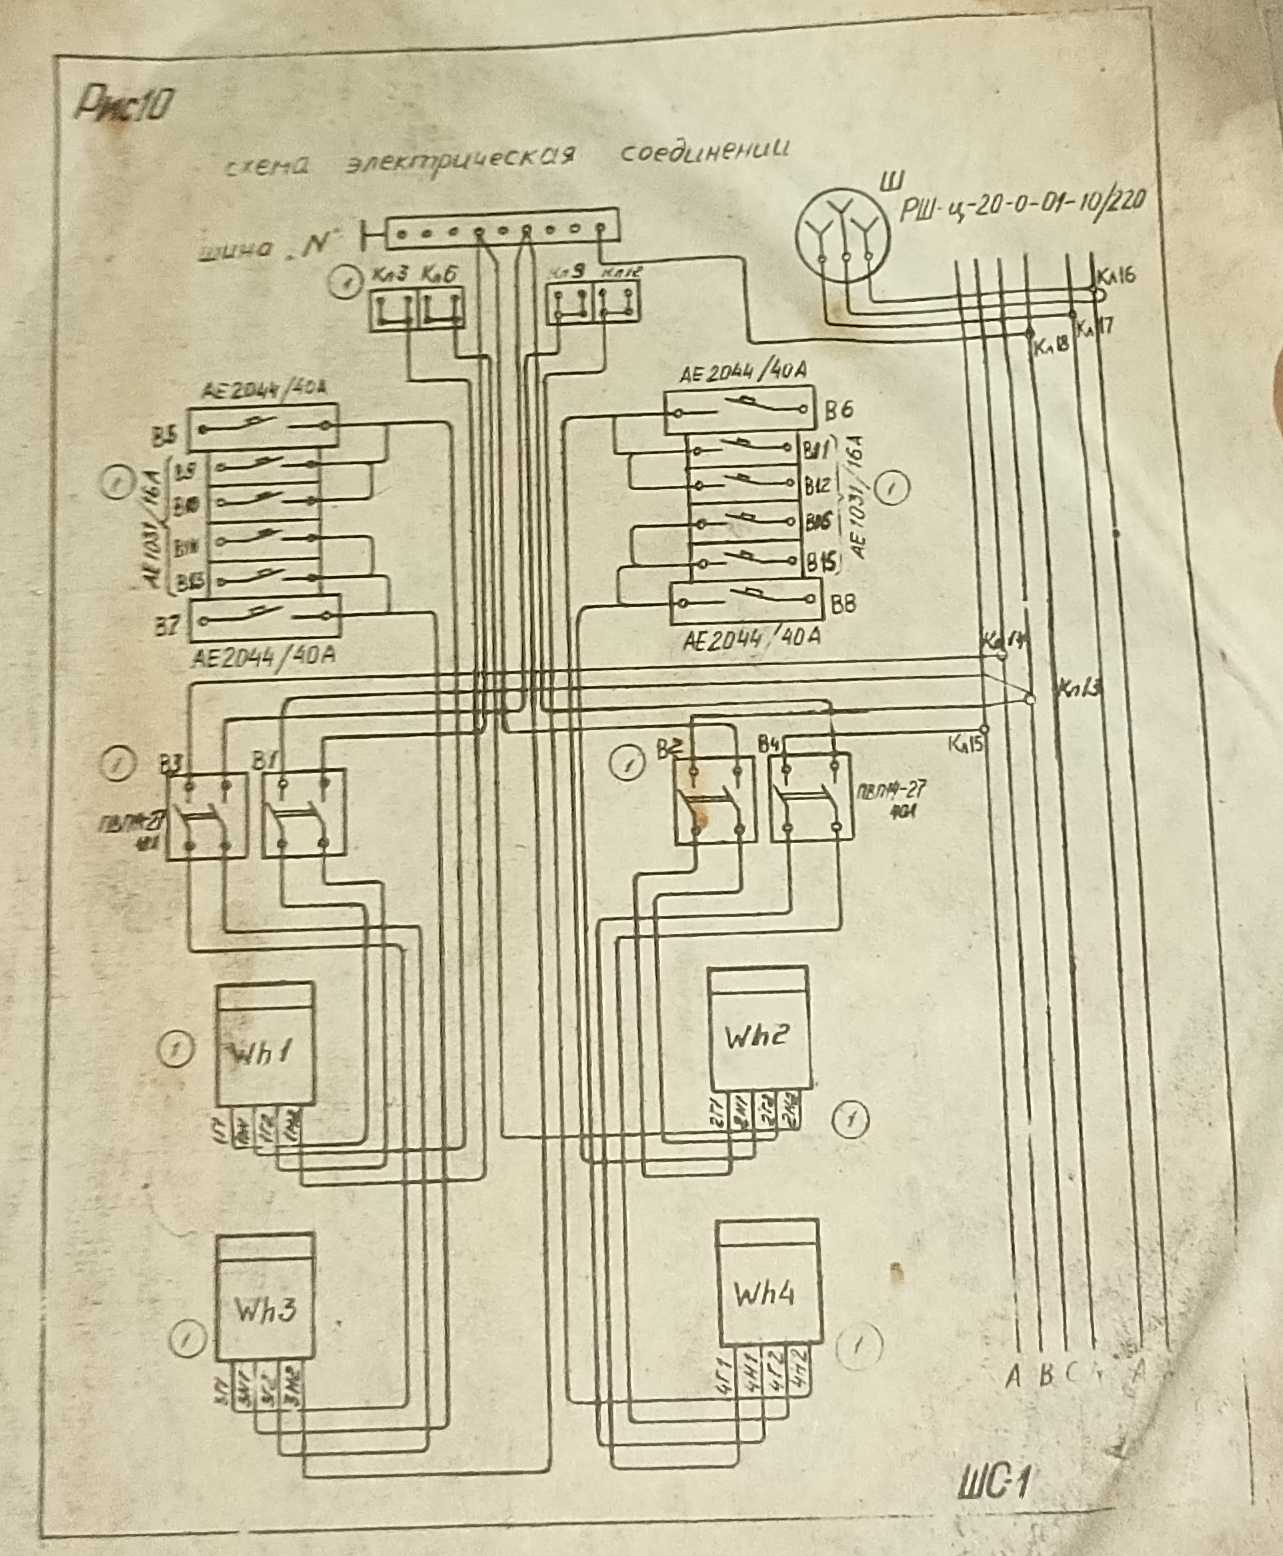 Рис10
схема электрическая соединении
Ш
РШ-ц-20-0-01-10/220
шина „N"
1
Кл3 Кл6
Кл9 Кл12
Кл16
Кл17
Кл18
АЕ2044/40А
АЕ2044/40А
В5
В6
1
В9
В11
В10
В12
1
АЕ1031/16А
АЕ1031/16А
В15
В7
В8
АЕ2044/40А
АЕ2044/40А
Кл14
Кл13
Кл15
1
В3
В1
1
В2
В4
ПВП14-27
ПВП14-27
1
Wh1
Wh2
1Г1
1Г2
1Н2
2Г1
2Н1
2Г2
2Н2
1
1
Wh3
Wh4
1
3Г1
3Н1
3Г2
3Н2
4Г1
4Н1
4Г2
4Н2
А В С
А
ШС-1